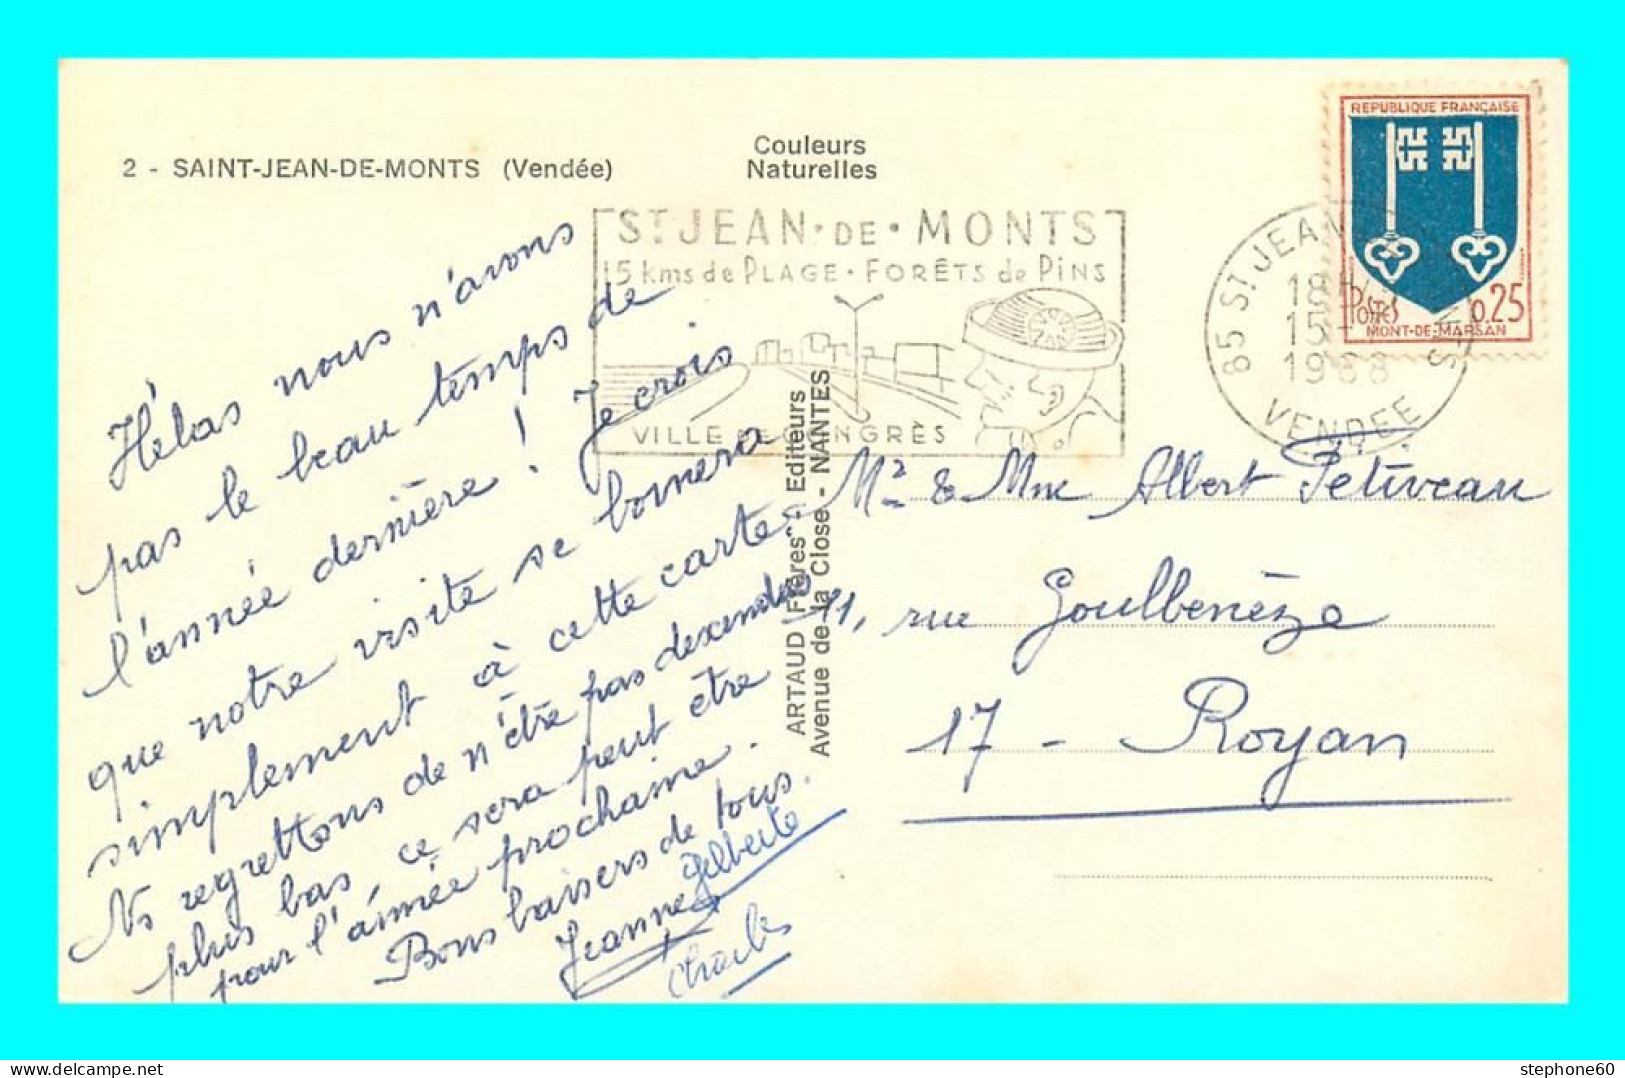 2 - SAINT-JEAN-DE-MONTS (Vendée)
Couleurs
Naturelles
REPUBLIQUE FRANÇAISE
POSTES
0,25
MONT-DE-MARSAN
ST JEAN · DE · MONTS
15 kms de PLAGE · FORÊTS de PINS
VILLE DE CONGRÈS
85 ST JEAN
18H
15-
1968
VENDEE
Hélas nous n'avons
pas le beau temps de
l'année dernière ! Je crois
que notre visite se bornera
simplement à cette carte.
Ns regrettons de n'être pas descendus
plus bas, ce sera peut être
pour l'année prochaine.
Bons baisers de tous.
Jeanne
Gilberte
Charles
ARTAUD Frères Editeurs
Avenue de la Close - NANTES
Mr & Mme Albert Petiveau
rue Goulbenèze
17 - Royan
stephone60